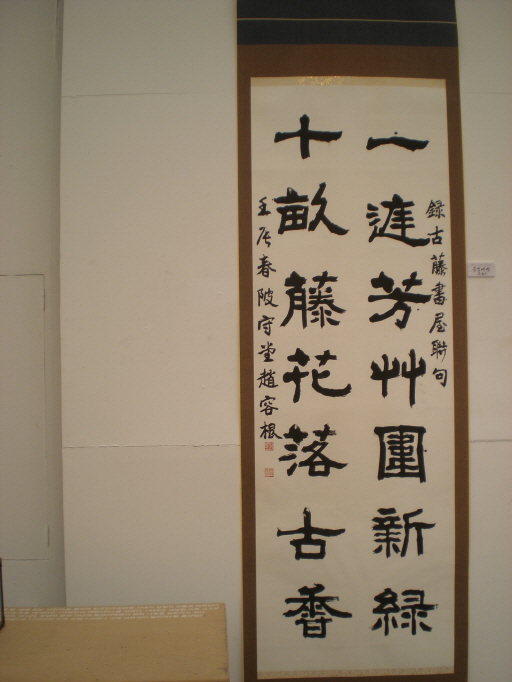 録古藤書屋聯句
一庭芳艸圍新緑
十畝藤花落古香
壬辰春陂守堂趙容根